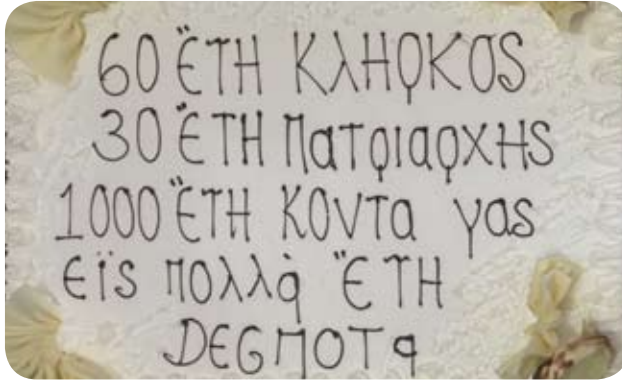 60 ἜΤΗ ΚλΗρΚΟS
30 ἜΤΗ ΠατριαρχΗS
1000 ἜΤΗ ΚΟντα γαs
Είs πολλὰ ἜΤΗ
DEGΠΟΤα